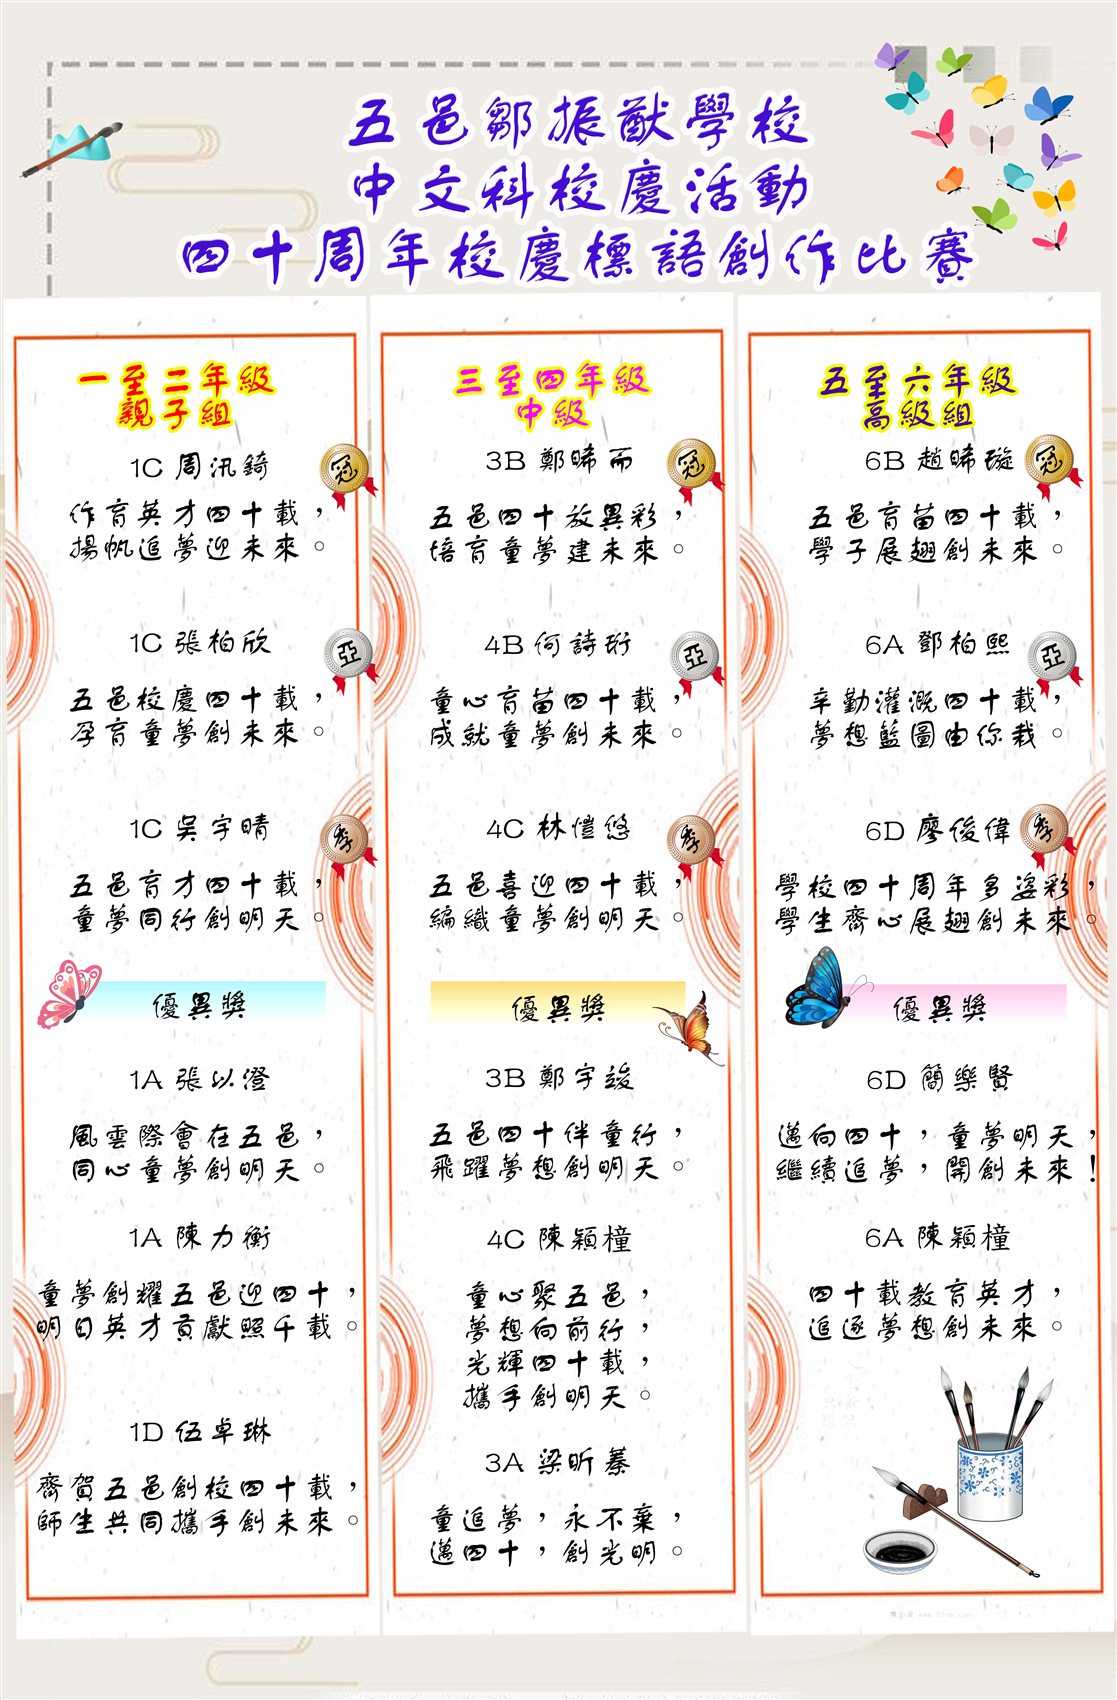 五邑鄒振猷學校
中文科校慶活動
四十周年校慶標語創作比賽
一至二年級
親子組
1C 周汛錡
冠
作育英才四十載，
揚帆追夢迎未來。
1C 張柏欣
亞
五邑校慶四十載，
孕育童夢創未來。
1C 吳宇晴
季
五邑育才四十載，
童夢同行創明天。
優異獎
1A 張以澄
風雲際會在五邑，
同心童夢創明天。
1A 陳力衡
童夢創耀五邑迎四十，
明日英才貢獻照千載。
1D 伍卓琳
齊賀五邑創校四十載，
師生共同攜手創未來。
三至四年級
中級
3B 鄭晞而
冠
五邑四十放異彩，
培育童夢建未來。
4B 何詩珩
亞
童心育苗四十載，
成就童夢創未來。
4C 林愷悠
季
五邑喜迎四十載，
編織童夢創明天。
優異獎
3B 鄭宇竣
五邑四十伴童行，
飛躍夢想創明天。
4C 陳穎橦
童心聚五邑，
夢想向前行，
光輝四十載，
攜手創明天。
3A 梁昕蓁
童追夢，永不棄，
邁四十，創光明。
五至六年級
高級組
6B 趙晞璇
冠
五邑育苗四十載，
學子展翅創未來。
6A 鄧柏熙
亞
辛勤灌溉四十載，
夢想藍圖由你栽。
6D 廖俊偉
季
學校四十周年多姿彩，
學生齊心展翅創未來。
優異獎
6D 簡樂賢
邁向四十，童夢明天，
繼續追夢，開創未來！
6A 陳穎橦
四十載教育英才，
追逐夢想創未來。